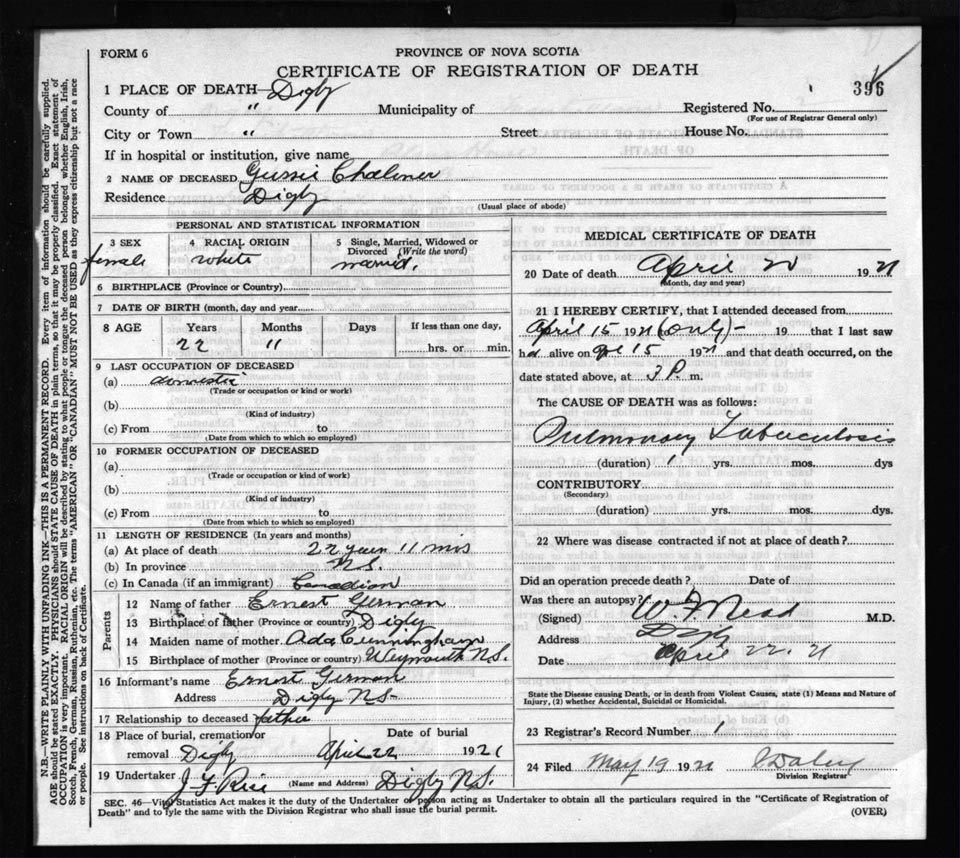 FORM 6
PROVINCE OF NOVA SCOTIA
CERTIFICATE OF REGISTRATION OF DEATH
396
1 PLACE OF DEATH—Digby
County of " Municipality of Registered No.
(For use of Registrar General only)
City or Town " Street House No.
If in hospital or institution, give name
2 NAME OF DECEASED Gussie Chalmer
Residence Digby
(Usual place of abode)
PERSONAL AND STATISTICAL INFORMATION
3 SEX 4 RACIAL ORIGIN 5 Single, Married, Widowed or Divorced (Write the word)
female white married.
6 BIRTHPLACE (Province or Country)
7 DATE OF BIRTH (month, day and year
8 AGE Years Months Days If less than one day,
22 11 hrs. or min.
9 LAST OCCUPATION OF DECEASED
(a) domestic
(Trade or occupation or kind or work)
(b)
(Kind of industry)
(c) From to
(Date from which to which so employed)
10 FORMER OCCUPATION OF DECEASED
(a)
(Trade or occupation or kind of work)
(b)
(Kind of industry)
(c) From to
(Date from which to which so employed)
11 LENGTH OF RESIDENCE (In years and months)
(a) At place of death 22 years 11 mos
(b) In province N.S.
(c) In Canada (if an immigrant) Canadian
Parents
12 Name of father Ernest German
13 Birthplace of father (Province or country) Digby
14 Maiden name of mother Ada Cunningham
15 Birthplace of mother (Province or country) Weymouth N.S.
16 Informant's name Ernest German
Address Digby N.S.
17 Relationship to deceased father
18 Place of burial, cremation or Date of burial
removal Digby April 22 1921
19 Undertaker J F Rice (Name and Address) Digby N.S.
MEDICAL CERTIFICATE OF DEATH
20 Date of death April 20 1921
(Month, day and year)
21 I HEREBY CERTIFY, that I attended deceased from
April 15 1921 (only)- 19 that I last saw
her alive on Apl 15 1921 and that death occurred, on the
date stated above, at 3 P. m.
The CAUSE OF DEATH was as follows:
Pulmonary Tuberculosis
(duration) 1 yrs. mos. dys
CONTRIBUTORY
(Secondary)
(duration) yrs. mos. dys.
22 Where was disease contracted if not at place of death?
Did an operation precede death? Date of
Was there an autopsy?
(Signed) W F Read M.D.
Address Digby
Date April 22. 21
State the Disease causing Death, or in death from Violent Causes, state (1) Means and Nature of
Injury, (2) whether Accidental, Suicidal or Homicidal.
23 Registrar's Record Number 1
24 Filed May 19 1921
Division Registrar
SEC. 46—Vital Statistics Act makes it the duty of the Undertaker or person acting as Undertaker to obtain all the particulars required in the "Certificate of Registration of
Death" and to fyle the same with the Division Registrar who shall issue the burial permit. (OVER)
N.B.—WRITE PLAINLY WITH UNFADING INK—THIS IS A PERMANENT RECORD. Every item of information should be carefully supplied.
AGE should be stated EXACTLY. PHYSICIANS should STATE CAUSE OF DEATH in plain terms, so that it may be properly classified. Exact statement of
OCCUPATION is very important. RACIAL ORIGIN will be described by stating to what people or tongue the deceased person belonged whether English, Irish,
Scotch, French, German, Russian, Ruthenian, etc. The terms "AMERICAN" OR "CANADIAN" MUST NOT BE USED as they express citizenship but not a race
or people. See instructions on back of Certificate.